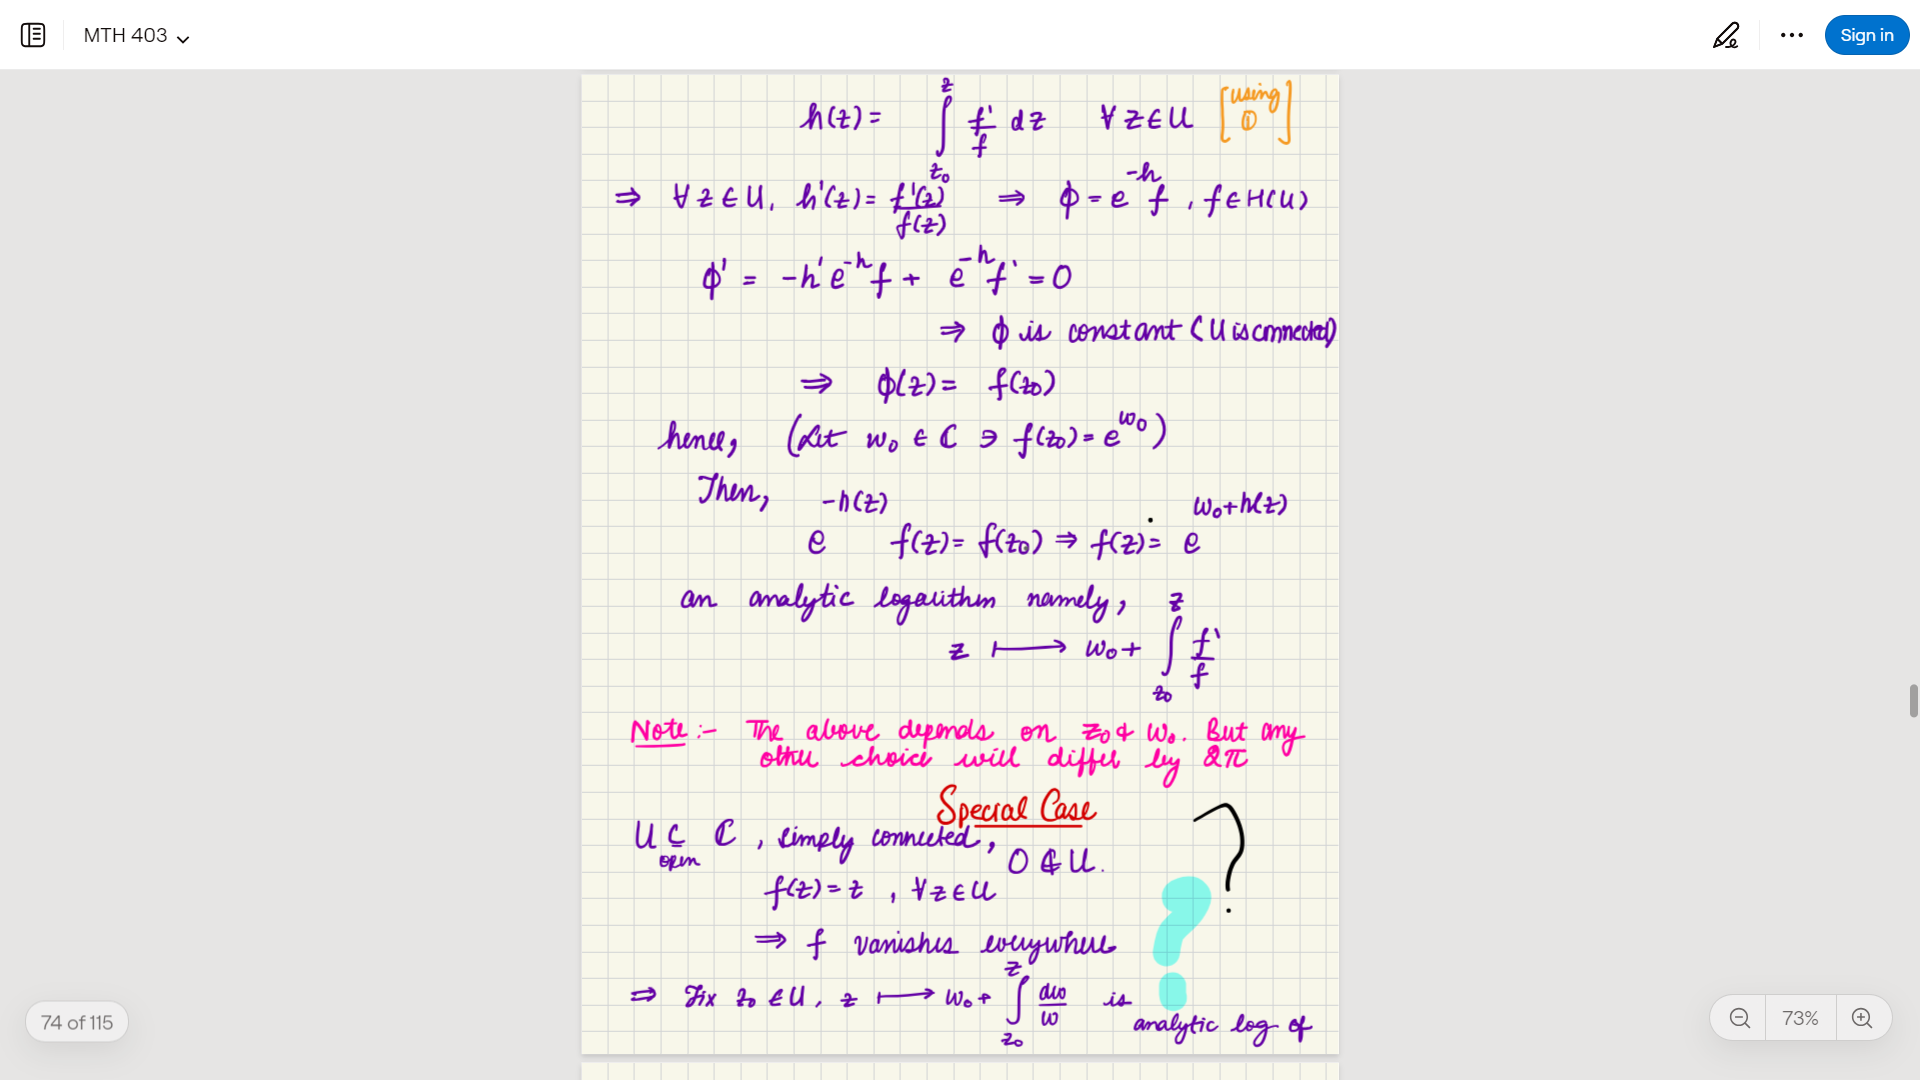 MTH 403
Sign in
h(z) = ∫_{z₀}^{z} f'/f dz ∀ z ∈ U [using ①]
⇒ ∀ z ∈ U, h'(z) = f'(z)/f(z) ⇒ ϕ = e^{-h} f, f ∈ H(U)
ϕ' = -h' e^{-h} f + e^{-h} f' = 0
⇒ ϕ is constant (U is connected)
⇒ ϕ(z) = f(z₀)
hence, (Let w₀ ∈ ℂ ∋ f(z₀) = e^{w₀})
Then,
e^{-h(z)} f(z) = f(z₀) ⇒ f(z) = e^{w₀+h(z)}
an analytic logarithm namely,
z ⟼ w₀ + ∫_{z₀}^{z} f'/f
Note :- The above depends on z₀ & w₀. But any
other choice will differ by 2π
Special Case
U ⊆ ℂ, simply connected,
open
0 ∉ U.
f(z) = z, ∀ z ∈ U
?
?
⇒ f vanishes everywhere
⇒ Fix z₀ ∈ U, z ⟼ w₀ + ∫_{z₀}^{z} dw/w is
analytic log of
74 of 115
73%